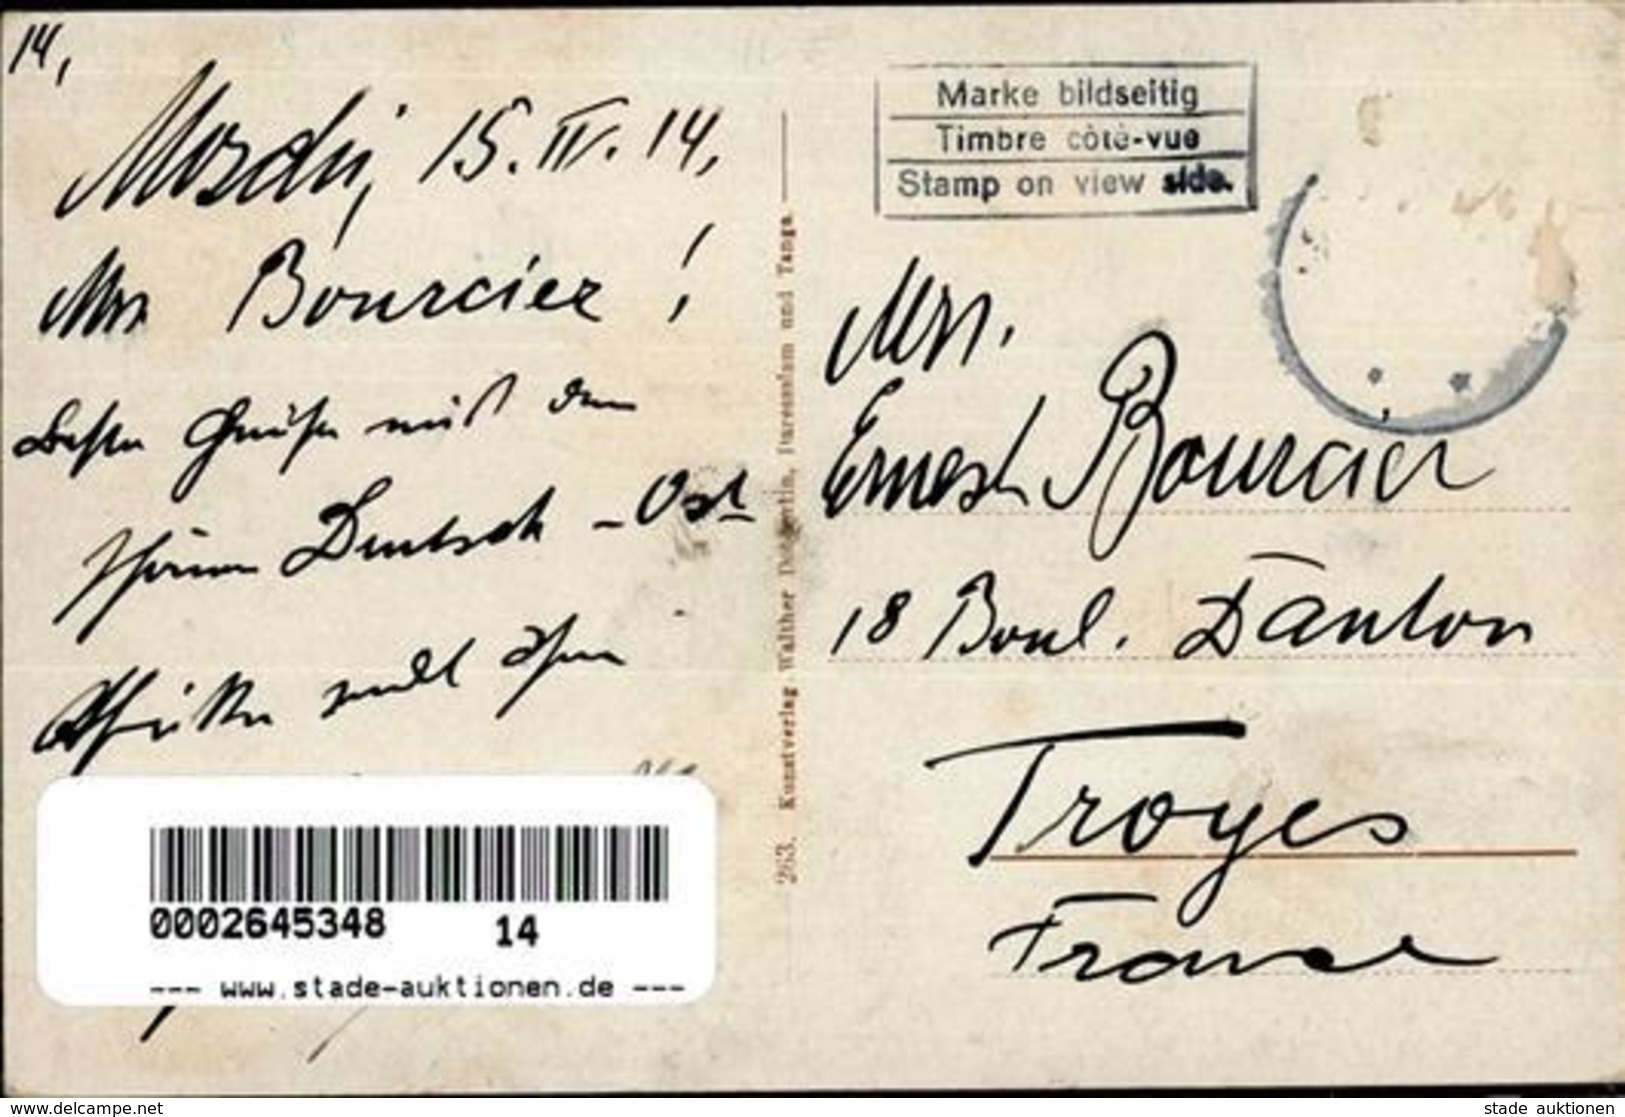 14,
Moschi, 15. IV. 14,
Mrs Bourcier !
Beste Grüße aus dem
schönen Deutsch-Ost
Afrika sendet Ihnen
Marke bildseitig
Timbre côté-vue
Stamp on view side.
Mrs.
Ernest Bourcier
18 Boul. Danton
Troyes
France
263. Kunstverlag Walther Dobbertin, Daressalam und Tanga
0002645348 14
--- www.stade-auktionen.de ---
www.delcampe.net
stade auktionen